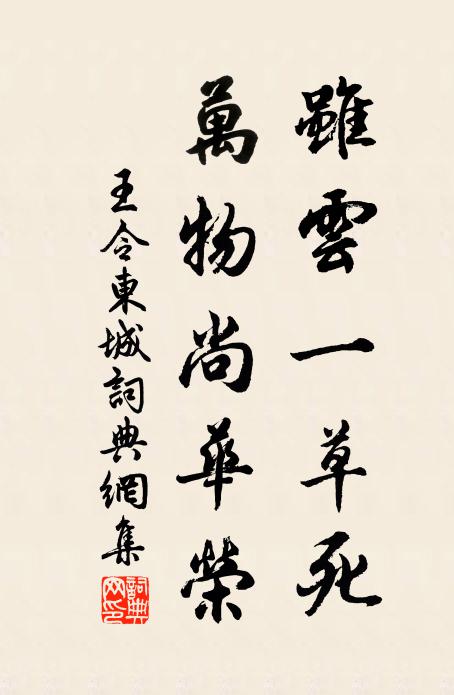 雖雲一草死
萬物尚華榮
王令東城詞典網集
詞典網印